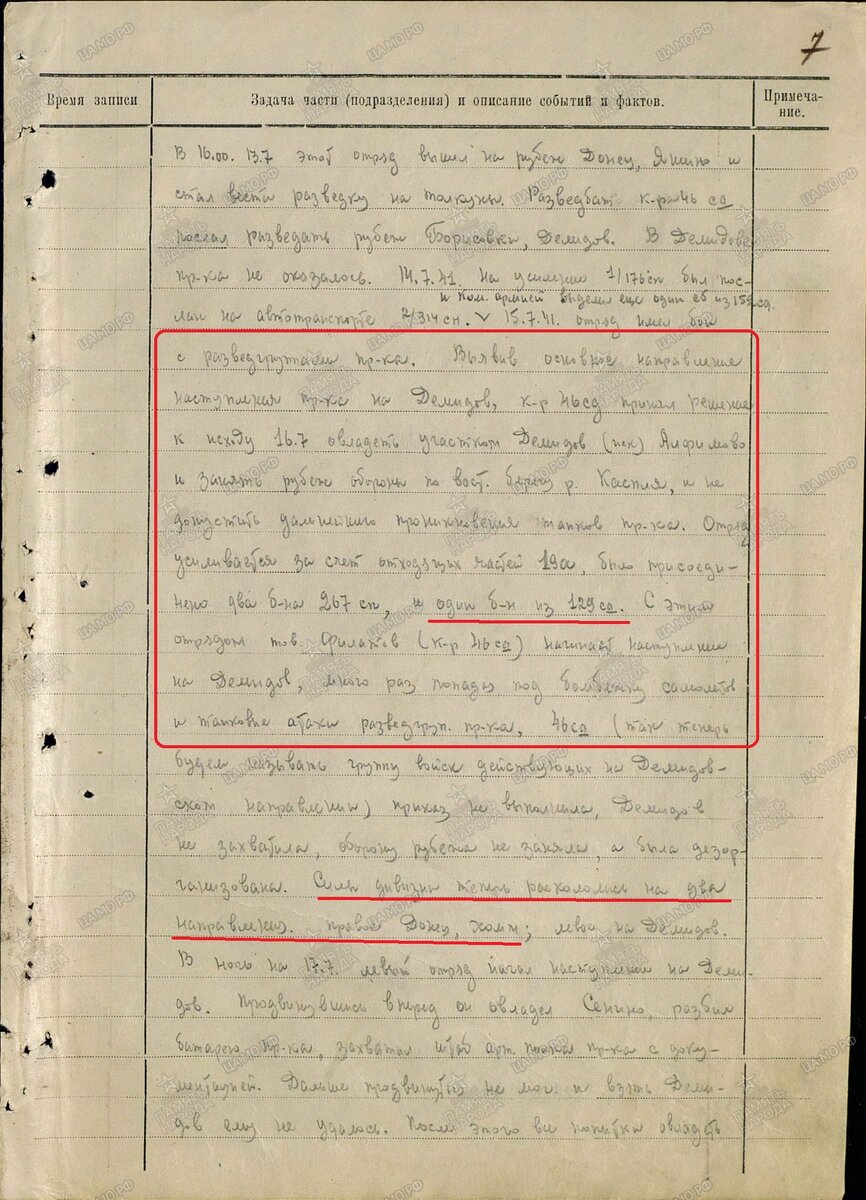 7
Время записи
Задача части (подразделения) и описание событий и фактов.
Примеча-
ние.
В 16.00. 13.7 этот отряд вышел на рубеж Донец, Яшино и
стал вести разведку на толкуны. Разведбат к-р 46 сд
послал разведать рубеж Борисовки, Демидов. В Демидове
пр-ка не оказалось. 14.7.41. на усиление 1/176 сп был пос-
и ком. армией выделил еще один сб из 152 сд.
лан на автотранспорте 2/314 сп. V 15.7.41. отряд имел бои
с разведгруппами пр-ка. Выявив основное направление
наступления пр-ка на Демидов, к-р 46сд принял решение
к исходу 16.7 овладеть участком Демидов (иск) Алфимово
и занять рубеж обороны по вост. берегу р. Каспля, и не
допустить дальнейшего проникновения танков пр-ка. Отряд
усиливается за счет отходящих частей 19а, было присоеди-
нено два б-на 267 сп, и один б-н из 129 сд. С этим
отрядом тов. Филатов (к-р 46 сд) начинает наступление
на Демидов, много раз попадая под бомбежку самолетов
и танковые атаки разведгруп. пр-ка, 46сд (так теперь
будем называть группу войск действующих на Демидов-
ском направлении) приказ не выполнила, Демидов
не захватила, оборону рубежа не заняла, а была дезор-
ганизована. Силы дивизии теперь раскололись на два
направления. правое Донец, холм; левое на Демидов.
В ночь на 17.7. левый отряд начал наступление на Деми-
дов. Продвинувшись вперед он овладел Сенино, разбил
батарею пр-ка, захватил штаб арт. полка пр-ка с доку-
ментацией. Дальше продвинуться не мог. и взять Деми-
дов ему не удалось. После этого все попытки овладеть